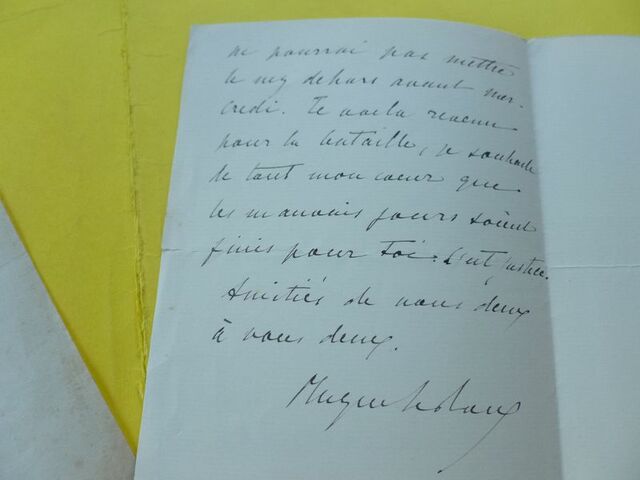 ne pourrai pas mettre
le nez dehors avant mer-
credi. Te voilà revenu
pour la bataille, je souhaite
de tout mon coeur que
les mauvais jours soient
finis pour toi. C'est justice.
Amitiés de nous deux
à vous deux.
Hugues Le Roux